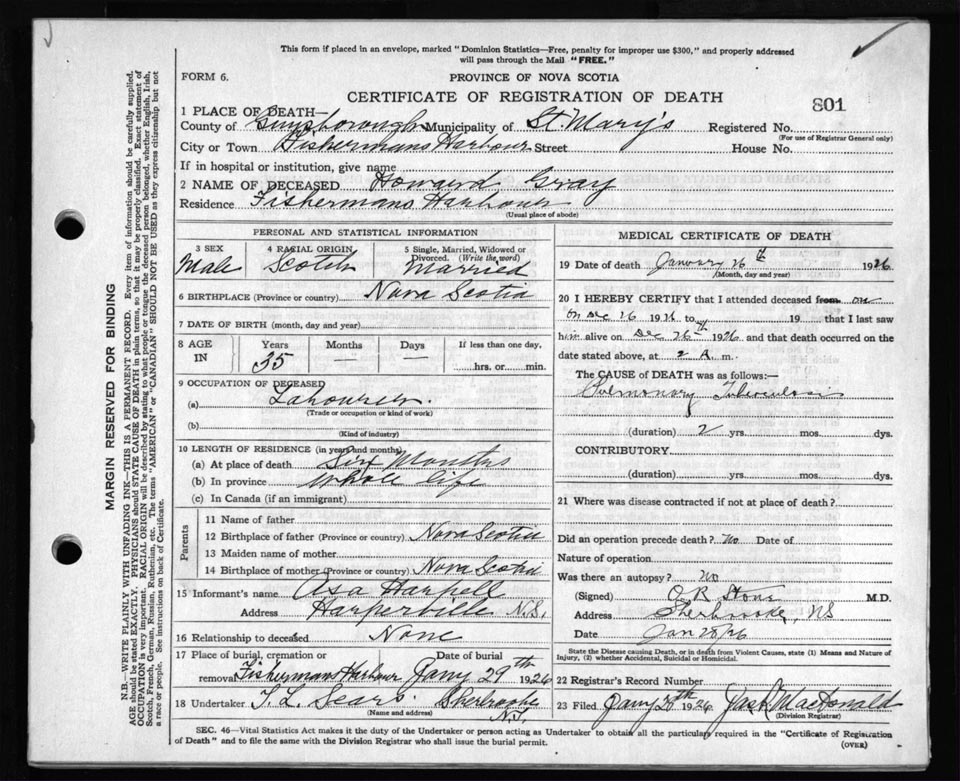 This form if placed in an envelope, marked "Dominion Statistics—Free, penalty for improper use $300," and properly addressed
will pass through the Mail "FREE."
FORM 6.
PROVINCE OF NOVA SCOTIA
CERTIFICATE OF REGISTRATION OF DEATH
801
1 PLACE OF DEATH—
County of Guysborough Municipality of St. Mary's Registered No.
(For use of Registrar General only)
City or Town Fishermans Harbour Street House No.
If in hospital or institution, give name
2 NAME OF DECEASED Howard Gray
Residence Fishermans Harbour
(Usual place of abode)
PERSONAL AND STATISTICAL INFORMATION
3 SEX 4 RACIAL ORIGIN 5 Single, Married, Widowed or
Divorced. (Write the word)
Male Scotch Married
6 BIRTHPLACE (Province or country) Nova Scotia
7 DATE OF BIRTH (month, day and year)
8 AGE IN Years Months Days If less than one day,
35 — — hrs. or min.
9 OCCUPATION OF DECEASED
(a) Labourer.
(Trade or occupation or kind of work)
(b)
(Kind of industry)
10 LENGTH OF RESIDENCE (in years and months)
(a) At place of death Six Months
(b) In province Whole life
(c) In Canada (if an immigrant)
Parents
11 Name of father
12 Birthplace of father (Province or country) Nova Scotia
13 Maiden name of mother
14 Birthplace of mother (Province or country) Nova Scotia
15 Informant's name Asa Harpell
Address Harperville N.S.
16 Relationship to deceased None
17 Place of burial, cremation or Date of burial
removal Fishermans Harbour Jany 29th 1926
18 Undertaker T. L. Sears Sherbrooke
(Name and address) N.S.
MEDICAL CERTIFICATE OF DEATH
19 Date of death January 26th 1926
(Month, day and year)
20 I HEREBY CERTIFY that I attended deceased from on
on Dec 26 19 to 19 that I last saw
him alive on Dec 26th 1926 and that death occurred on the
date stated above, at 2 A m.
The CAUSE OF DEATH was as follows:—
Pulmonary Tuberculosis
(duration) 2 yrs. mos. dys.
CONTRIBUTORY
(duration) yrs. mos. dys.
21 Where was disease contracted if not at place of death?
Did an operation precede death? No Date of
Nature of operation
Was there an autopsy? No
(Signed) Stone M.D.
Address Sherbrooke, NS
Date Jan 28/26
State the Disease causing Death, or in death from Violent Causes, state (1) Means and Nature of
Injury, (2) whether Accidental, Suicidal or Homicidal.
22 Registrar's Record Number
23 Filed Jany 28th 1926 Jas A MacDonald
(Division Registrar)
SEC. 46—Vital Statistics Act makes it the duty of the Undertaker or person acting as Undertaker to obtain all the particulars required in the "Certificate of Registration
of Death" and to file the same with the Division Registrar who shall issue the burial permit.
(OVER)
MARGIN RESERVED FOR BINDING
N.B.—WRITE PLAINLY WITH UNFADING INK—THIS IS A PERMANENT RECORD. Every item of information should be carefully supplied.
AGE should be stated EXACTLY. PHYSICIANS should STATE CAUSE OF DEATH in plain terms, so that it may be properly classified. Exact statement of
OCCUPATION is very important. RACIAL ORIGIN will be described by stating to what people or tongue the deceased person belonged, whether English, Irish,
Scotch, French, German, Russian, Ruthenian, etc. The terms "AMERICAN" or "CANADIAN" SHOULD NOT BE USED as they express citizenship but not
a race or people. See instructions on back of Certificate.